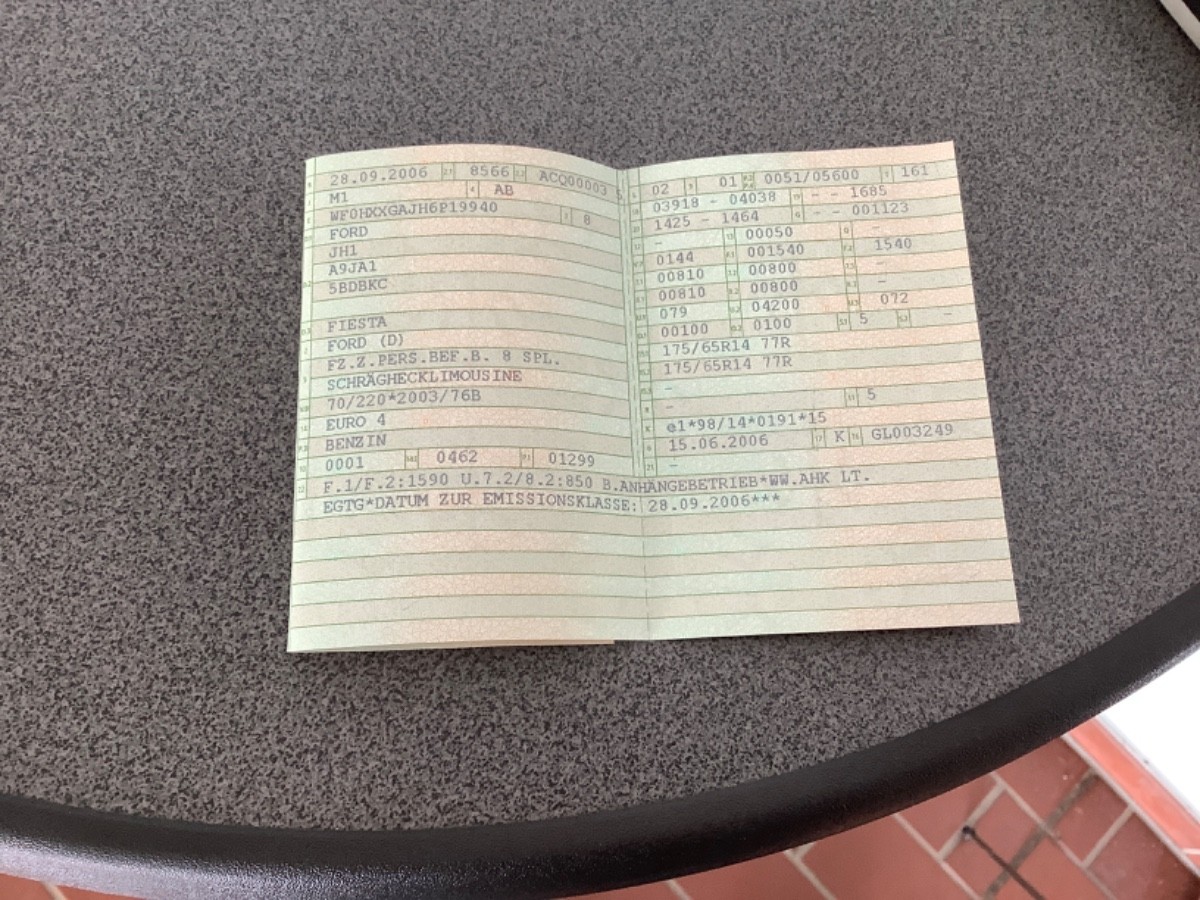 28.09.2006 8566 ACQ00003 5
M1 AB
WF0HXXGAJH6P19940 8
FORD
JH1
A9JA1
5BDBKC
FIESTA
FORD (D)
FZ.Z.PERS.BEF.B. 8 SPL.
SCHRÄGHECKLIMOUSINE
70/220*2003/76B
EURO 4
BENZIN
0001 0462 01299
02 01 0051/05600 161
03918 - 04038 - - 1685
1425 - 1464 - - 001123
- 00050 -
0144 001540 1540
00810 00800 -
00810 00800 -
079 04200 072
00100 0100 5 -
175/65R14 77R
175/65R14 77R
-
- 5
e1*98/14*0191*15
15.06.2006 K GL003249
-
F.1/F.2:1590 U.7.2/8.2:850 B.ANHÄNGEBETRIEB*WW.AHK LT.
EGTG*DATUM ZUR EMISSIONSKLASSE: 28.09.2006***